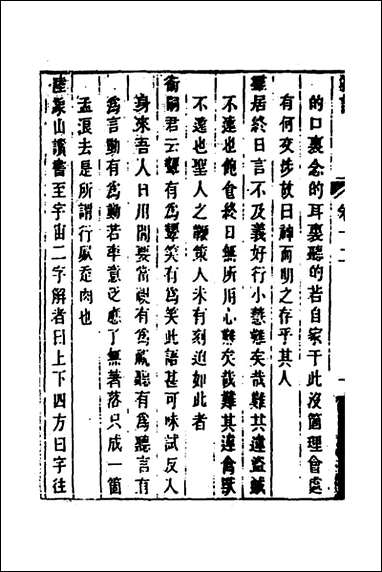 的口裏念的耳裏聽的若自家于此沒箇理會處
有何交涉故曰神而明之存乎其人
羣居終日言不及義好行小慧難矣哉難其違盜賊
不遠也飽食終日無所用心難矣哉難其違禽獸
不遠也聖人之鞭策人未有刻迫如此者
衛嗣君云嚬有爲嚬笑有爲笑此語甚可味試反入
身來吾人日用間要當視有爲視聽有爲聽言有
爲言動有爲動若率意泛應了無著落只成一箇
孟浪去是所謂行尸走肉也
陸象山讀書至宇宙二字解者曰上下四方曰宇往
卷十二